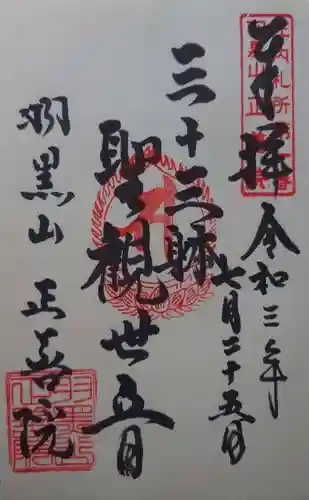 奉拝
令和三年
七月二十五日
三十三師
聖観世音
羽黒山 正善院